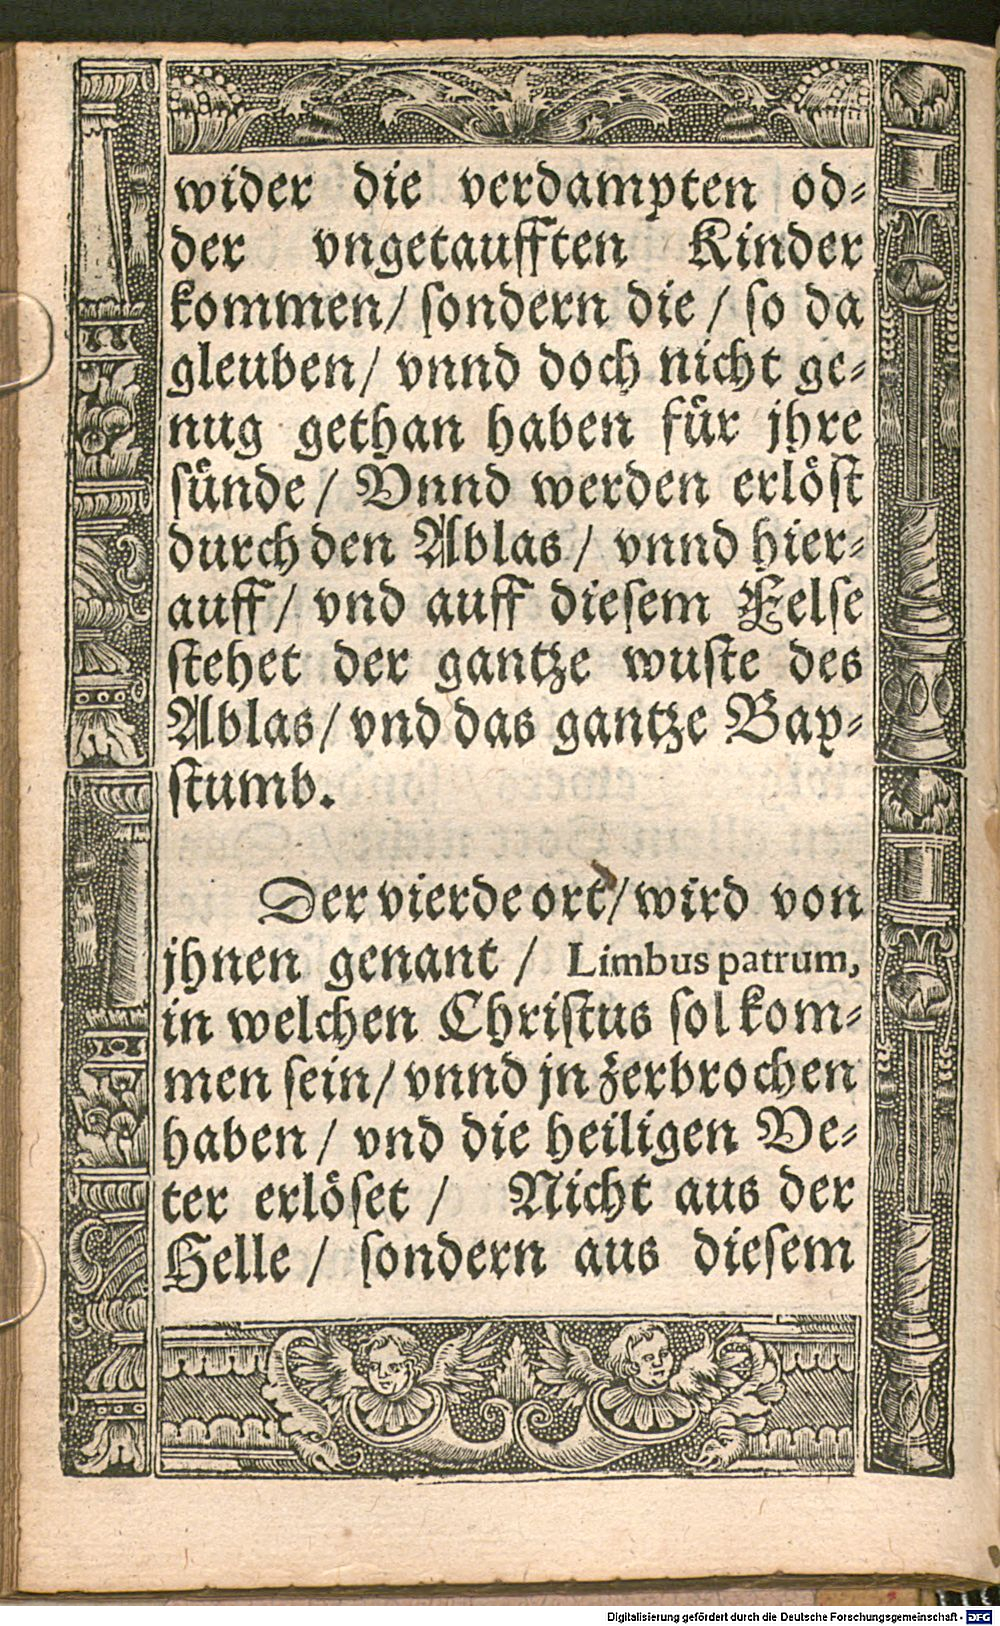 wider die verdampten od⸗
der vngetaufften Kinder
kommen/ ſondern die / ſo da
gleuben/ vnnd doch nicht ge⸗
nug gethan haben fuͤr jhre
ſuͤnde/ Vnnd werden erloͤſt
durch den Ablas/ vnnd hier⸗
auff/ vnd auff dieſem Felſe
ſtehet der gantze wuſte des
Ablas/ vnd das gantze Bap⸗
ſtumb.
Der vierde ort/ wird von
jhnen genant / Limbus patrum,
in welchen Chriſtus ſol kom⸗
men ſein/ vnnd jn zerbrochen
haben/ vnd die heiligen Ve⸗
ter erloͤſet / Nicht aus der
Helle / ſondern aus dieſem
Digitalisierung gefördert durch die Deutsche Forschungsgemeinschaft - DFG